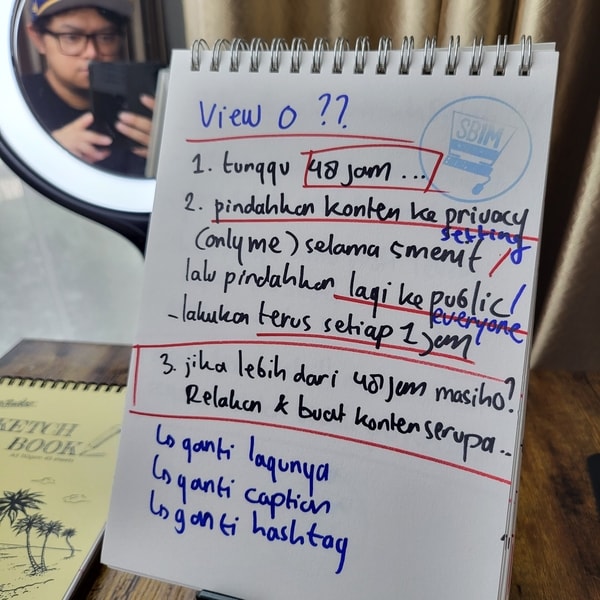 View 0 ??
SBIM
1. tunggu 48 jam ...
2. pindahkan konten ke privacy
setting
(only me) selama 5 menit /
lalu pindahkan lagi ke public/
everyone
- lakukan terus setiap 1 jam
3. jika lebih dari 48 jam masih 0?
Relakan & buat konten serupa..
↳ ganti lagunya
↳ ganti caption
↳ ganti hashtag
SKETCH
BOOK